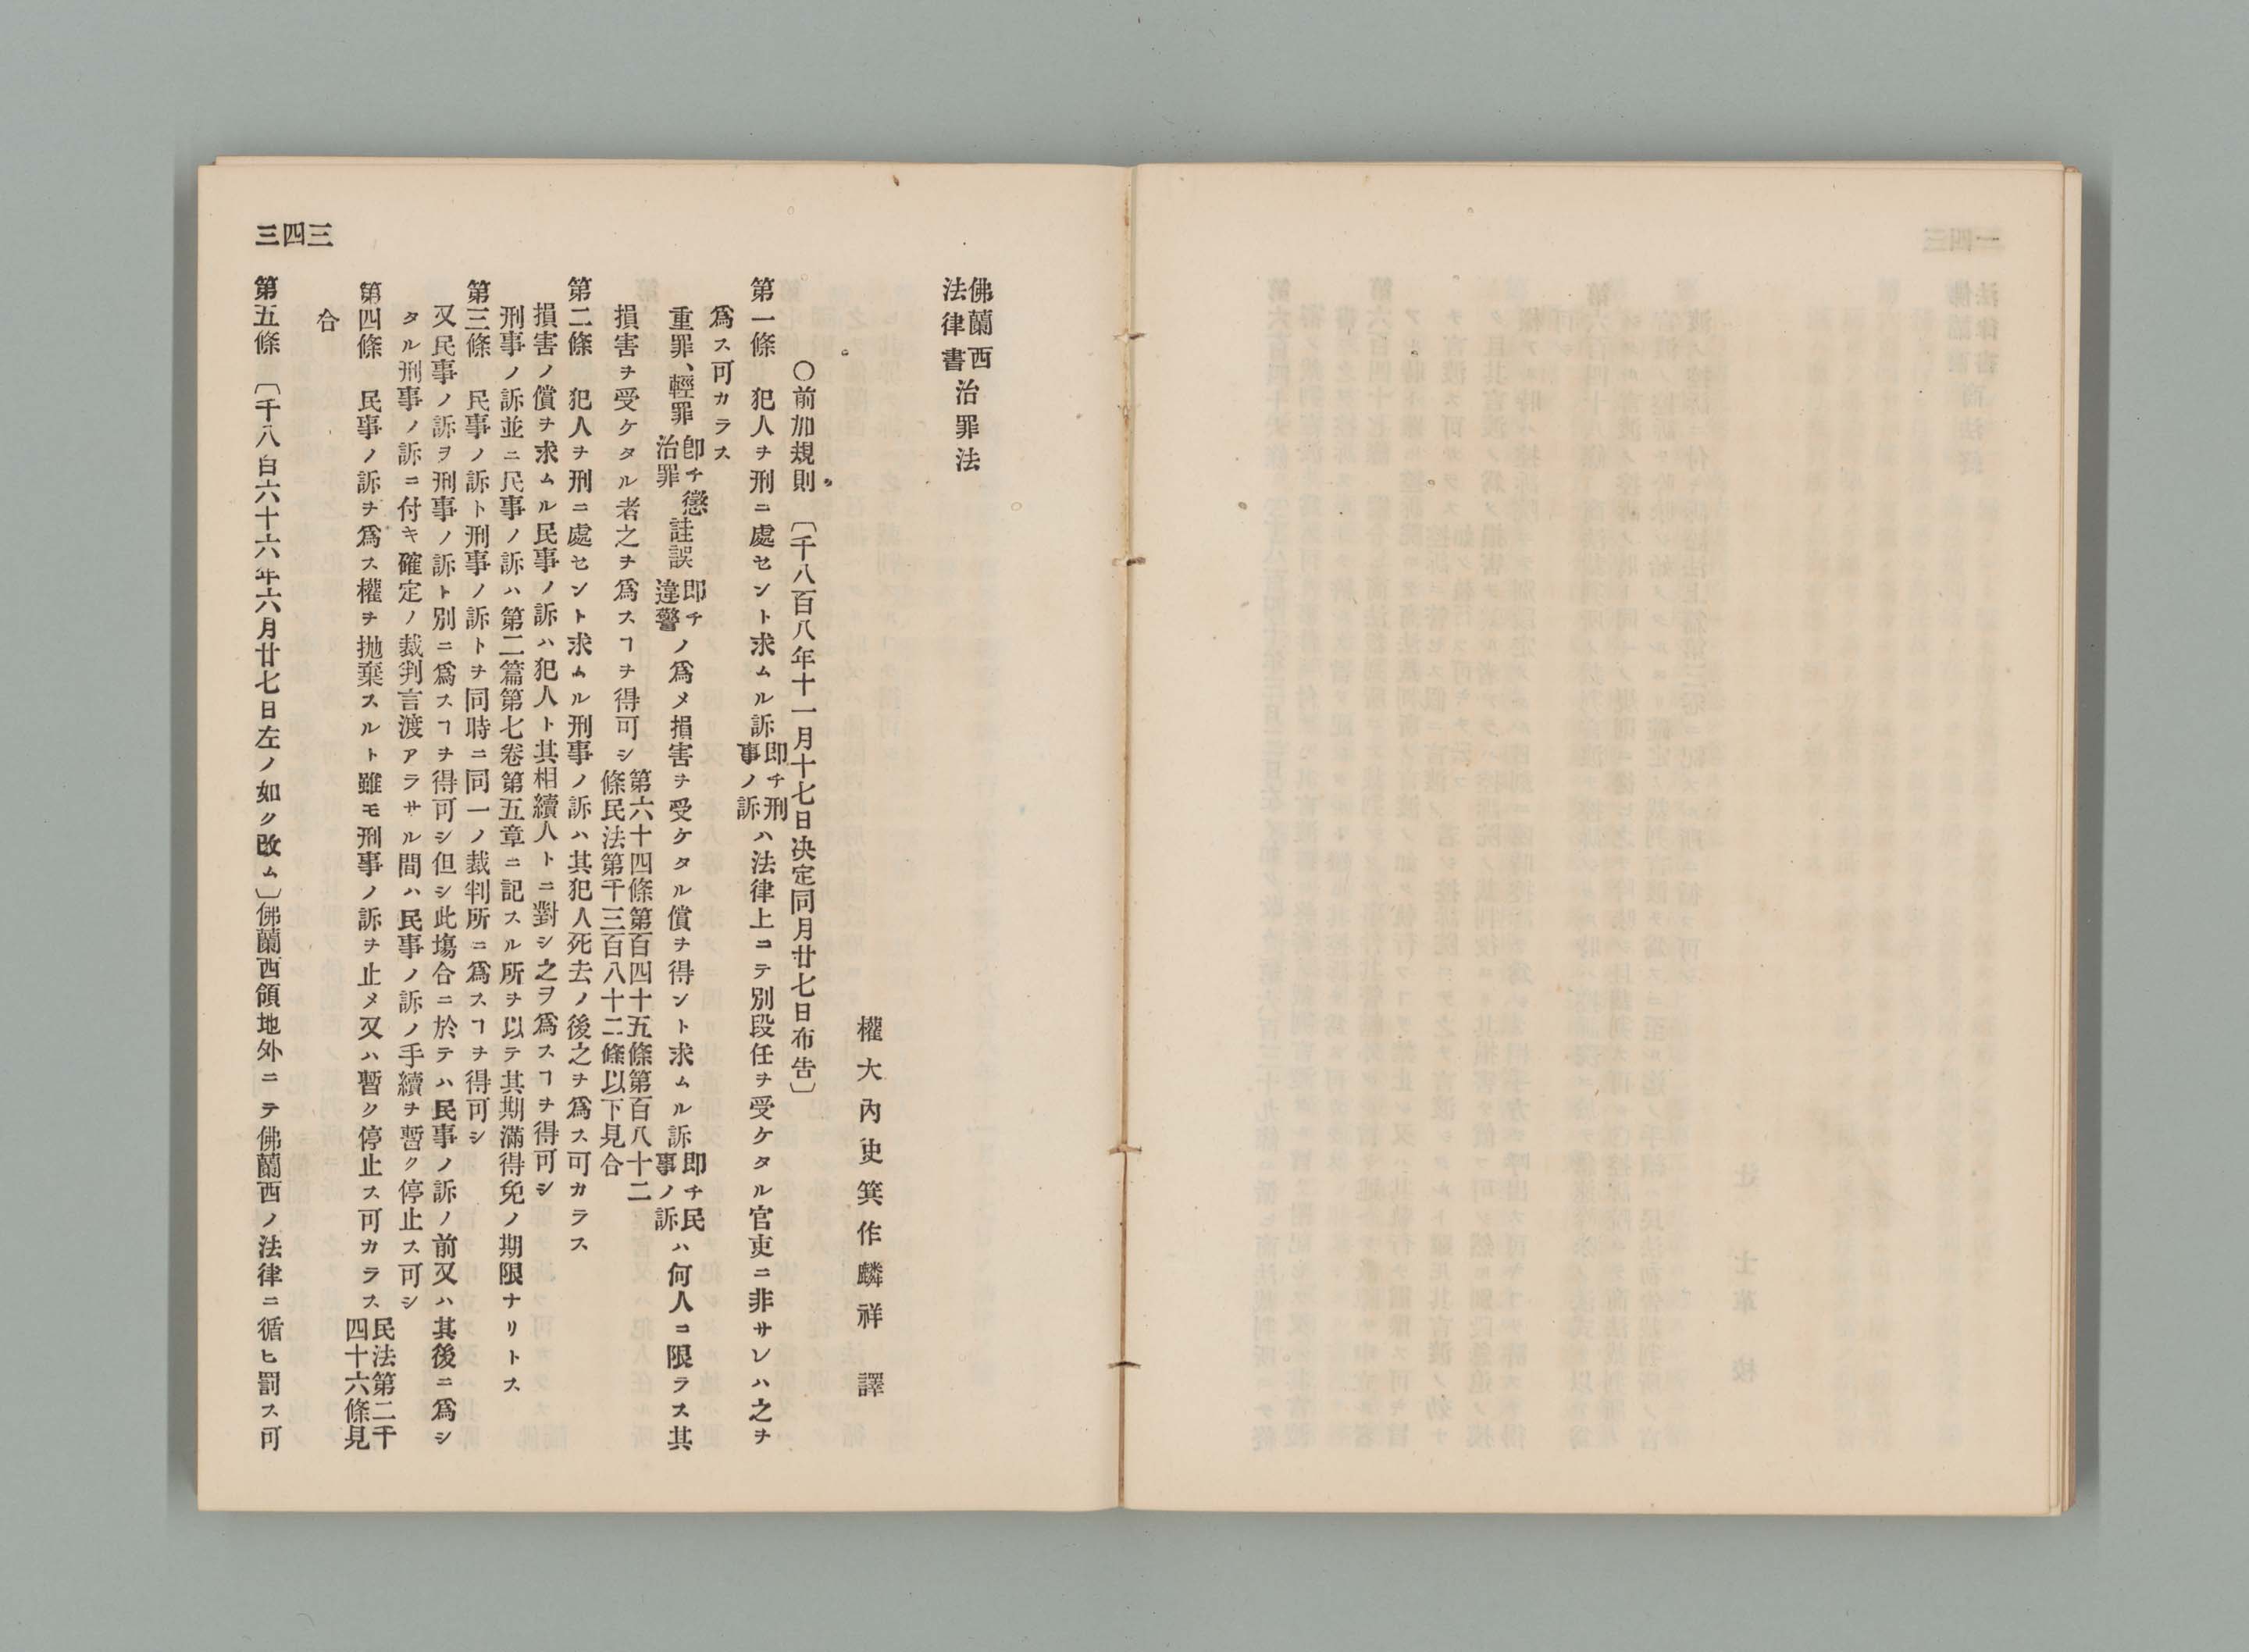 佛蘭西
法律書 治罪法
權大內史箕作麟祥 譯
○前加規則 〔千八百八年十一月十七日決定同月廿七日布告〕
第一條 犯人ヲ刑ニ處セント求ムル訴即チ刑事ノ訴ハ法律上ニテ別段任ヲ受ケタル官吏ニ非サレハ之ヲ
爲ス可カラス
重罪、輕罪即チ懲治罪註誤即チ違警ノ爲メ損害ヲ受ケタル償ヲ得ント求ムル訴即チ民事ノ訴ハ何人ニ限ラス其
損害ヲ受ケタル者之ヲ爲スヿヲ得可シ第六十四條第百四十五條第百八十二條民法第千三百八十二條以下見合
第二條 犯人ヲ刑ニ處セント求ムル刑事ノ訴ハ其犯人死去ノ後之ヲ爲ス可カラス
損害ノ償ヲ求ムル民事ノ訴ハ犯人ト其相續人トニ對シ之ヲ爲スヿヲ得可シ
刑事ノ訴並ニ民事ノ訴ハ第二篇第七卷第五章ニ記スル所ヲ以テ其期滿得免ノ期限ナリトス
第三條 民事ノ訴ト刑事ノ訴トヲ同時ニ同一ノ裁判所ニ爲スヿヲ得可シ
又民事ノ訴ヲ刑事ノ訴ト別ニ爲スヿヲ得可シ但シ此塲合ニ於テハ民事ノ訴ノ前又ハ其後ニ爲シ
タル刑事ノ訴ニ付キ確定ノ裁判言渡アラサル間ハ民事ノ訴ノ手續ヲ暫ク停止ス可シ
第四條 民事ノ訴ヲ爲ス權ヲ抛棄スルト雖モ刑事ノ訴ヲ止メ又ハ暫ク停止ス可カラス民法第二千四十六條見
合
第五條 〔千八百六十六年六月廿七日左ノ如ク改ム〕佛蘭西領地外ニテ佛蘭西ノ法律ニ循ヒ罰ス可
三四三